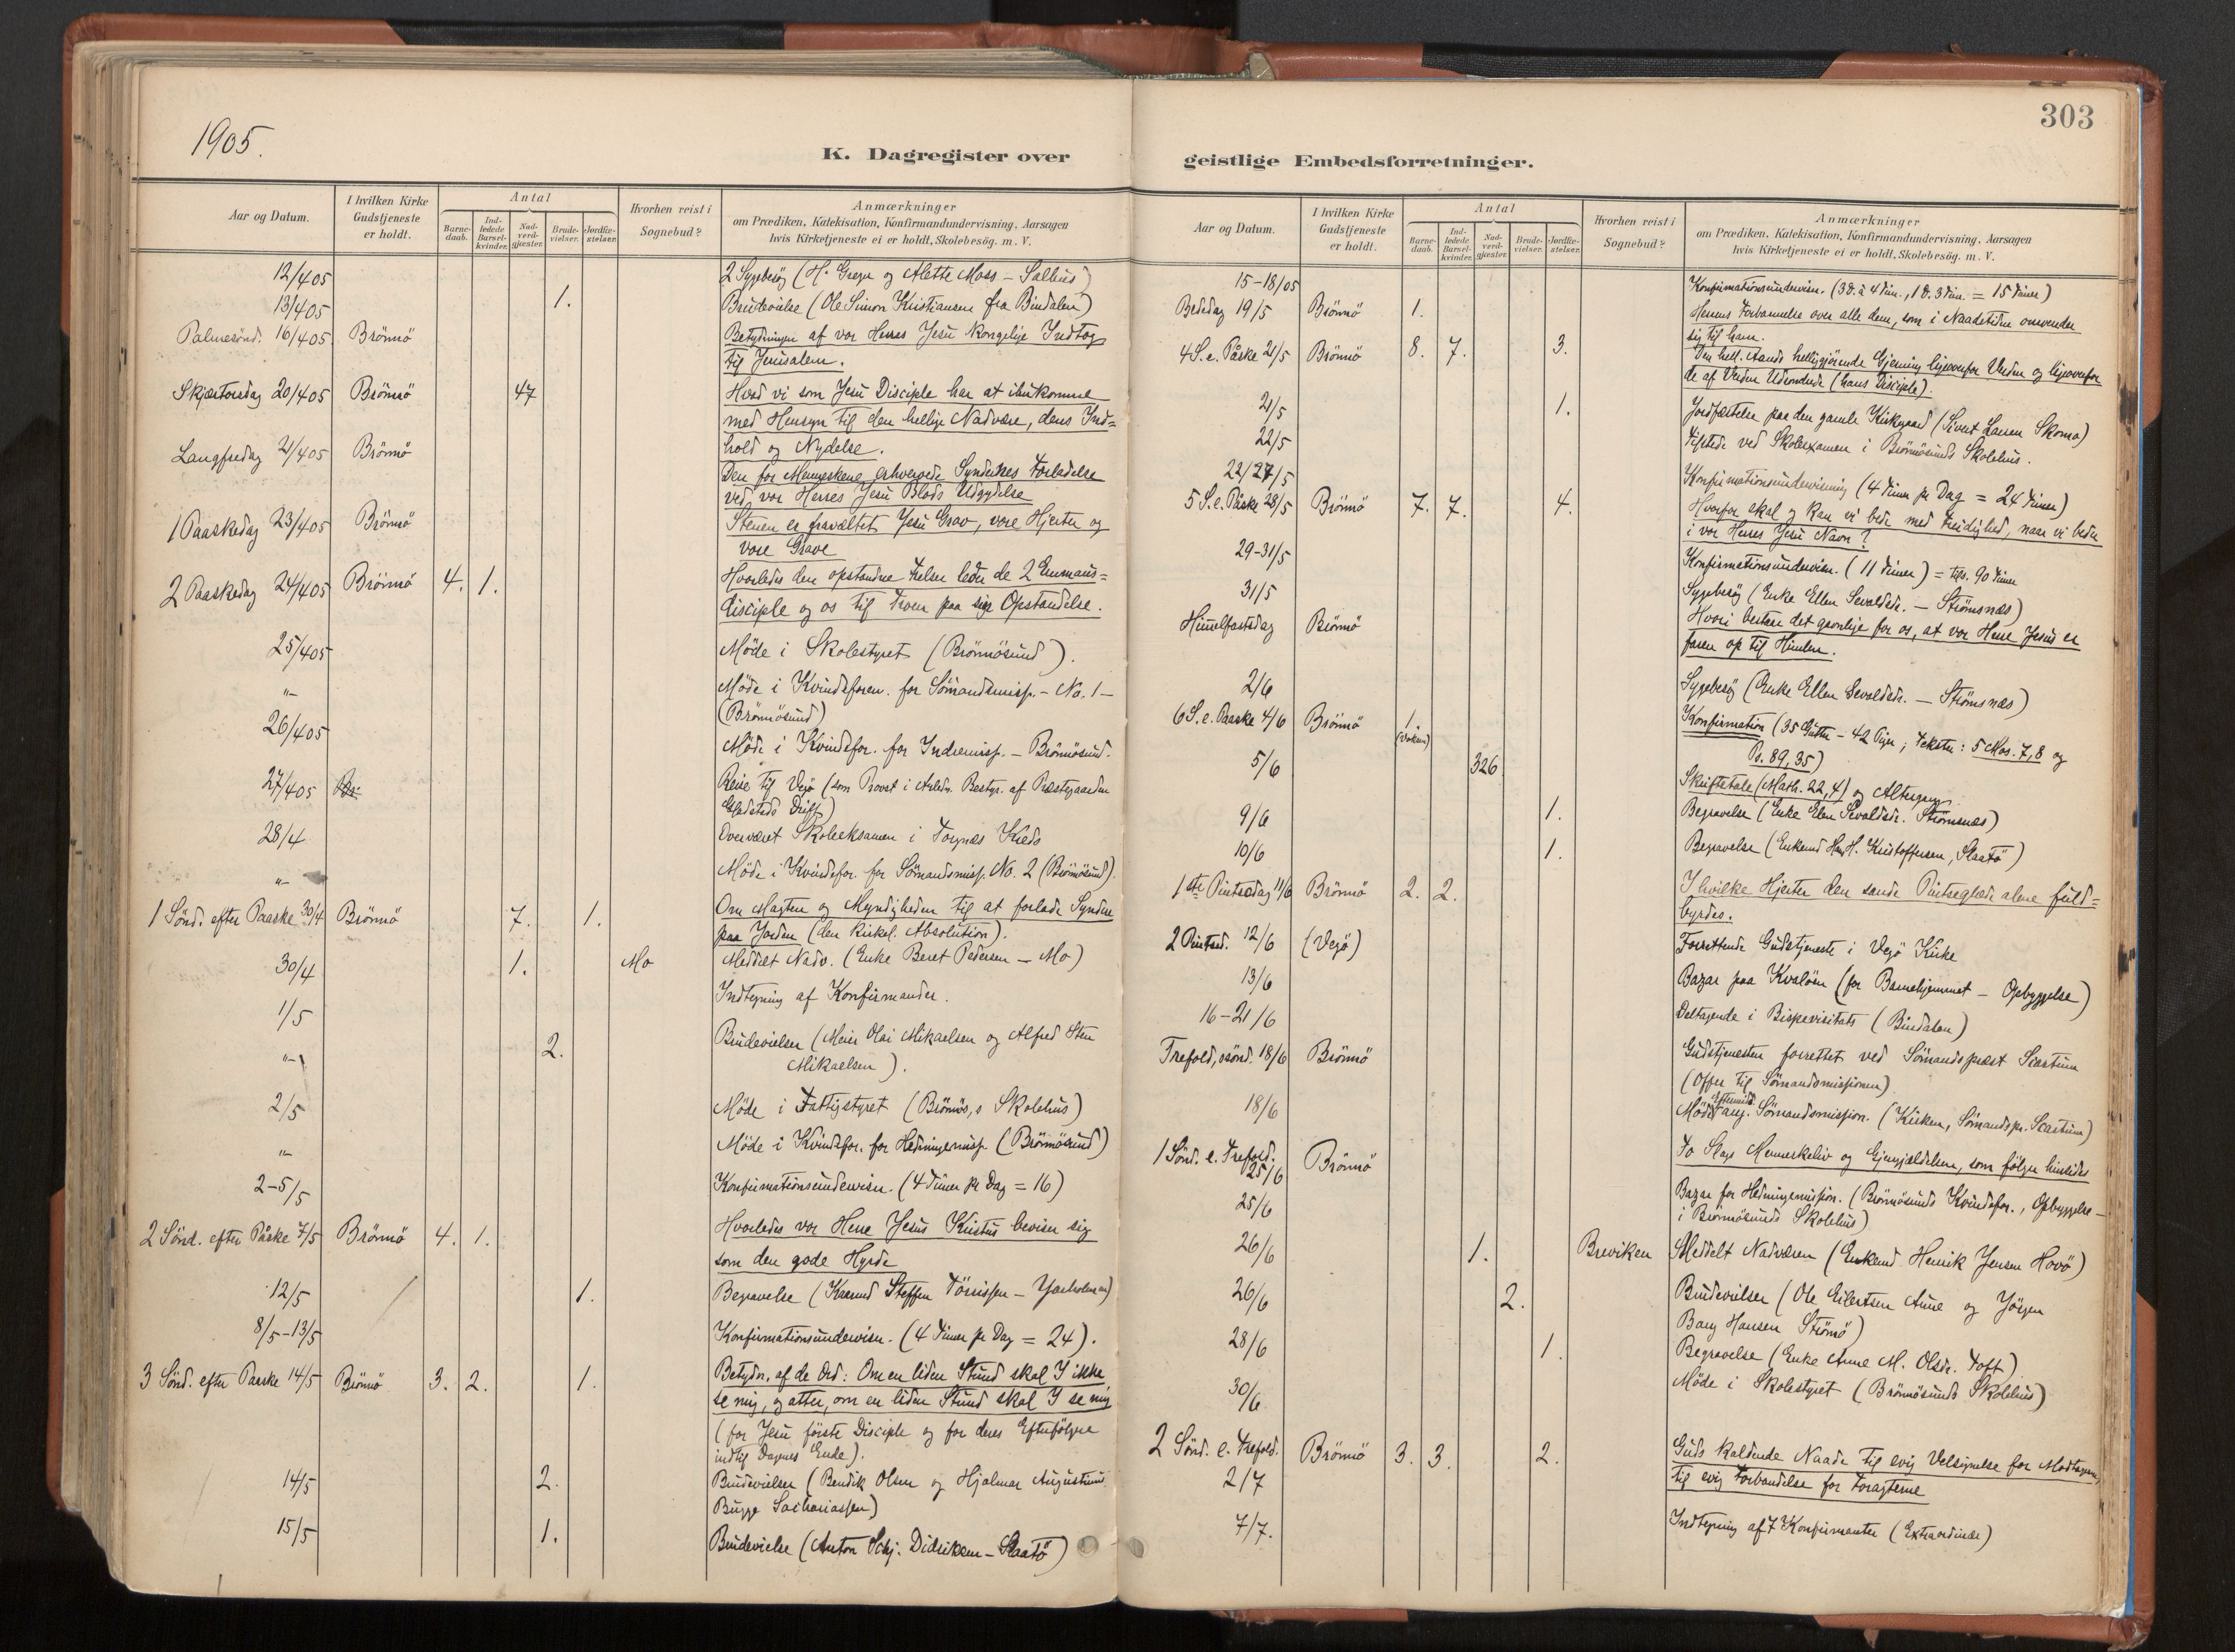 1905.
K. Dagregister over
Aar og Datum.
I hvilken Kirke Gudstjeneste er holdt.
Antal
Barne-daab.
Ind-ledede Barsel-kvinder.
Nad-verd-gjæster.
Brude-vielser.
Jordfæ-stelser.
Hvorhen reist i Sognebud?
Anmærkninger
om Prædiken, Katekisation, Konfirmandundervisning, Aarsagen
hvis Kirketjeneste ei er holdt, Skolebesög. m. V.
12/4 05 2 Sygebesög (H. Greger og Alette Moss - Salhus)
13/4 05 1. Brudevielse (Ole Simon Kristiansen fra Bindalen)
Palmesönd. 16/4 05 Brönnö Betydningen af vor Herres Jesu Kongelige Indtog
til Jerusalem.
Skjærtorsdag 20/4 05 Brönnö 47 Hvad vi som Jesu Disciple har at ihukomme
med Hensyn til den hellige Nadvere, dens Ind=
hold og Nydelse.
Langfredag 21/4 05 Brönnö
Den for Menneskene erhvervede Syndernes Forladelse
ved vor Herres Jesu Blods Udgydelse
1 Paaskedag 23/4 05 Brönnö Stenen er fravæltet Jesu Grav, vore Hjerter og
vore Grave
2 Paaskedag 24/4 05 Brönnö 4. 1. Hvorledes den opstandne Frelser leder de 2 Emmaus=
disciple og os til Troen paa sin Opstandelse.
25/4 05 Möde i Skolestyret (Brönnösund).
"- Möde i Kvindeforen. for Sömandsmiss. - No. 1 -
(Brönnösund)
26/4 05 Möde i Kvindefor. for Indremiss. - Brönnösund.
27/4 05 Reise til Vegö (som Provst i Anledn. Bestyr. af Præstegaarden
Gladstads Drift)
28/4 Overværet Skoleeksamen i Torgnæs Kreds
"- Möde i Kvindefor. for Sömandsmiss. No. 2 (Brönnösund).
1 Sönd. efter Paaske 30/4 Brönnö 7. 1. Om Magten og Myndigheden til at forlade Syndene
paa Jorden (den kirkel. Absolution).
30/4 1. Mo Meddelt Nadv. (Enke Beret Pedersen - Mo)
1/5 Indtegning af Konfirmander.
"- 2. Brudevielser (Meier Olai Mikaelsen og Alfred Sten
Mikaelsen).
2/5 Möde i Fattigstyret (Brönnös,s Skolehus)
"- Möde i Kvindefor. for Hedningemiss. (Brönnösund)
2-5/5 Konfirmationsundervisn. (4 Timer pr Dag = 16)
2 Sönd. efter Påske 7/5 Brönnö 4. 1. Hvorledes vor Herre Jesus Kristus beviser sig
som den gode Hyrde
12/5 1. Begravelse (Kaarmd Steffen Tönissen -
8/5-13/5 Konfirmationsundervisn. (4 Timer pr Dag = 24).
3 Sönd. efter Paaske 14/5 Brönnö 3. 2. 1. Betydn. af de Ord: Om en liden Stund skal I ikke
se mig, og atter, om en liden Stund skal I se mig
(for Jesu förste Disciple og for deres Efterfölgere
indtil Dagenes Ende).
14/5 2. Brudevielser (Bendik Olsen og Hjalmar Augustinus
Bugge Sachariassen)
15/5 1. Brudevielse (Anton Schj. Didriksen - Slaatö)
303
geistlige Embedsforretninger.
Aar og Datum.
I hvilken Kirke Gudstjeneste er holdt.
Antal
Barne-daab.
Ind-ledede Barsel-kvinder.
Nad-verd-gjæster.
Brude-vielser.
Jordfæ-stelser.
Hvorhen reist i Sognebud?
Anmærkninger
om Prædiken, Katekisation, Konfirmandundervisning, Aarsagen
hvis Kirketjeneste ei er holdt, Skolebesög. m. V.
15-18/05 Konfirmationsundervisn. (3 D. à 4 Tim., 1 D. 3 Tim. = 15 Timer)
Bededag 19/5 Brönnö 1. Herrens Forbarmelse over alle dem, som i Naadetiden omvender
sig til ham.
4 S. e. Påske 21/5 Brönnö 8. 7. 3. Den hell. Aands helliggjörende Gjerning ligeoverfor Verden og ligeoverfor
de af Verden Udvandrede (hans Disciple).
21/5 1. Jordfæstelse paa den gamle Kirkegaard (Sivert Larsen Skomo)
22/5 Tilstede ved Skolexamen i Brönnösunds Skolehus.
22/27/5 Konfirmationsundervisning (4 Timer pr Dag = 24 Timer)
5 S. e. Påske 28/5 Brönnö 7. 7. 4. Hvorfor skal og kan vi bede med Freidighed, naar vi beder
i vor Herres Jesu Navn?
29-31/5 Konfirmationsundervisn. (11 Timer) = tils. 90 Timer
31/5 Sygebesög (Enke Ellen Sevaldsdr. - Strömsnæs)
Himmelfartsdag Brönnö Hvori bestaar det gavnlige for os, at vor Herre Jesus er
faren op til Himlen.
2/6 Sygebesög (Enke Ellen Sevaldsdr. - Strömsnæs)
6 S. e. Paaske 4/6 Brönnö 1. (voksen) Konfirmation (35 Gutter - 42 Piger; Tekster: 5 Mos. 7,8 og
Ps. 89,35)
5/6 326 Skriftetale (Math. 22,4) og Altergang.
9/6 1. Begravelse (Enke Elen Sevaldsdr. Strömsnæs)
10/6 1. Begravelse (Enkemd Hans H. Kristoffersen, Slaatö)
1ste Pintsedag 11/6 Brönnö 2. 2. I hvilke Hjerter den sande Pintseglæde alene fuld=
byrdes.
2 Pintsed. 12/6 (Vegö) Forrettende Gudstjeneste i Vegö Kirke
13/6 Bazar paa Kvalöen (for Barnehjemmet - Opbyggelse)
16-21/6 Deltagende i Bispevisitats (Bindalen)
Trefold,ssönd. 18/6 Brönnö Gudstjenesten forrettet ved Sömandspræst Seastrum
(Offer til Sömandsmissionen)
18/6 Möde Eftermidd. ang. Sömandsmission. (Kirken, Sömandspr. Seastrum)
1 Sönd. e. Trefold. 25/6 Brönnö To Slags Menneskeliv og Gjengjældelsen, som fölger hinsides
25/6 Bazar for Hedningemission. (Brönnösunds Kvindefor., Opbyggelse -
i Brönnösunds Skolehus)
26/6 1. Breviken Meddelt Nadveren (Enkemd Henrik Jensen Havö)
26/6 2. Brudevielser (Ole Eilertsen Aune og Jörgen
Bang Hansen Strömö)
28/6 1. Begravelse (Enke Anne M. Olsdr. Toft)
30/6 Möde i Skolestyret (Brönnösunds Skolehus)
2 Sönd. e. Trefold. 2/7 Brönnö 3. 3. 2. Guds kaldende Naade til evig Velsignelse for Modtagerne,
til evig Forbandelse for Foragterne
7/7. Indtegning af 7 Konfirmanter (Extraordinære)